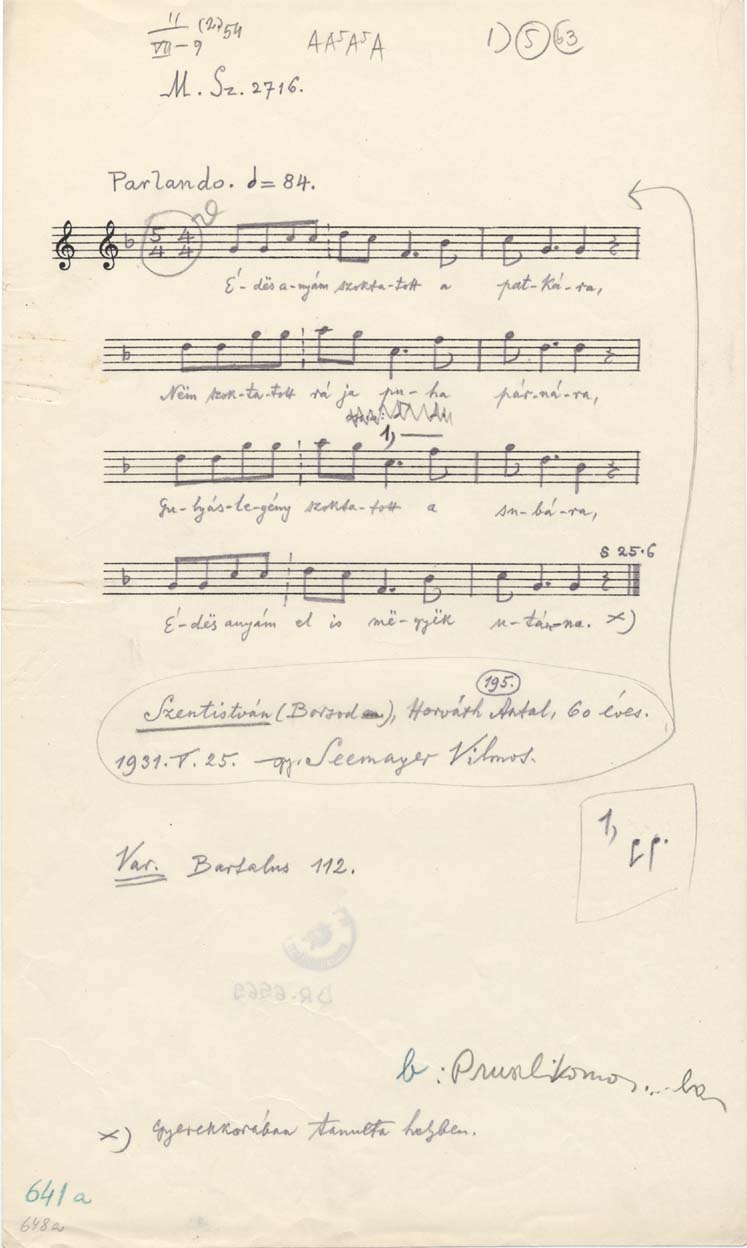 II (2) 54
VII – 9
A A⁵ A⁵ A
1) 5 b3
M. Sz. 2716.
Parlando. = 84.
5 4
4 4
É-dës a-nyám szokta-tott a pat-ká-ra,
Nëm szok-ta-tott rá ja pu-ha pár-ná-ra,
1,
Gu-lyás-le-gény szokta-tott a su-bá-ra,
S 25.6
É-dës anyám el is më-gyëk u-tán-na. x)
195.
Szentistván (Borsod), Horváth Antal, 60 éves.
1931. V. 25. gy. Seemayer Vilmos.
1,
Var. Bartalus 112.
DR. 6969
b: Pruslikomo... ba
x) Gyerekkorában tanulta helyben.
641 a
648 a